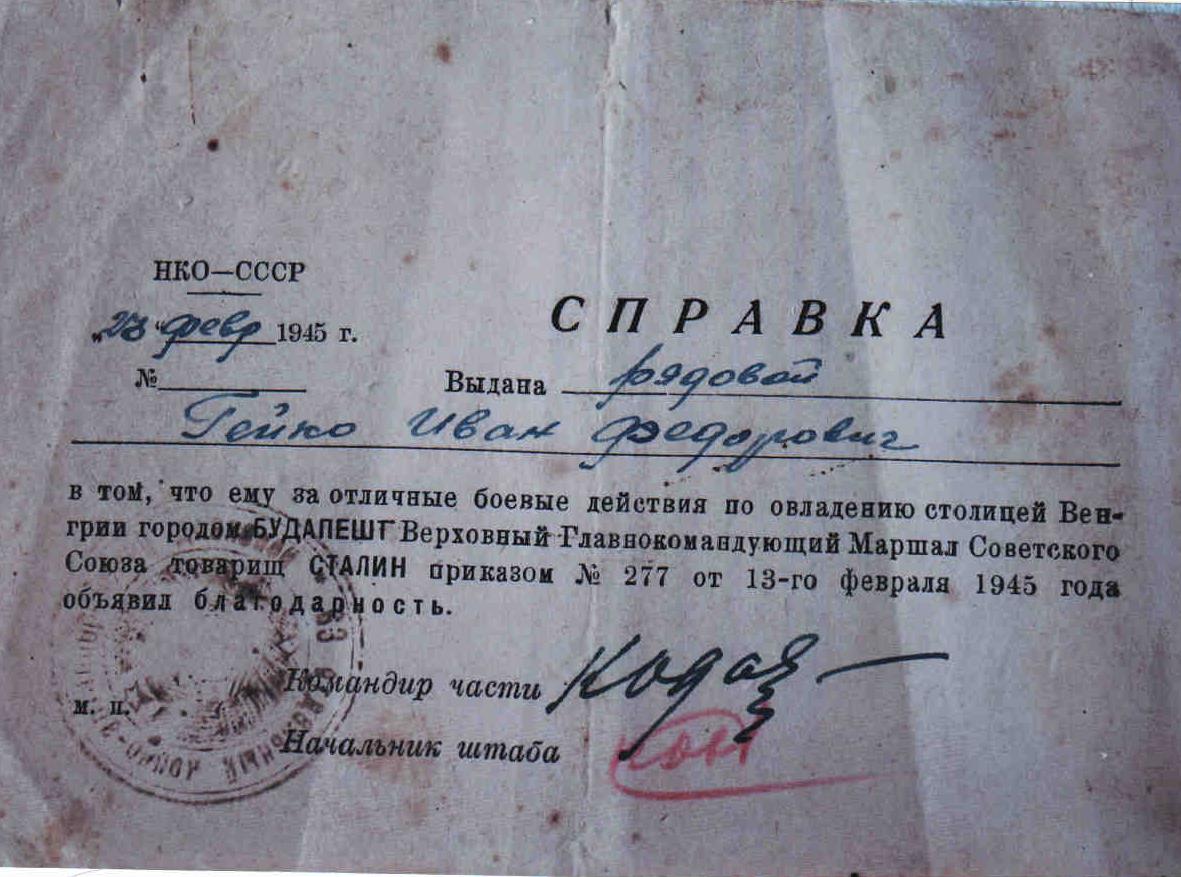 НКО—СССР
„23 “ февр 1945 г.
СПРАВКА
№
Выдана рядовой
Гейко Иван Федорович
в том, что ему за отличные боевые действия по овладению столицей Вен-
грии городом БУДАПЕШТ Верховный Главнокомандующий Маршал Советского
Союза товарищ СТАЛИН приказом № 277 от 13-го февраля 1945 года
объявил благодарность.
Командир части
м. п.
Начальник штаба